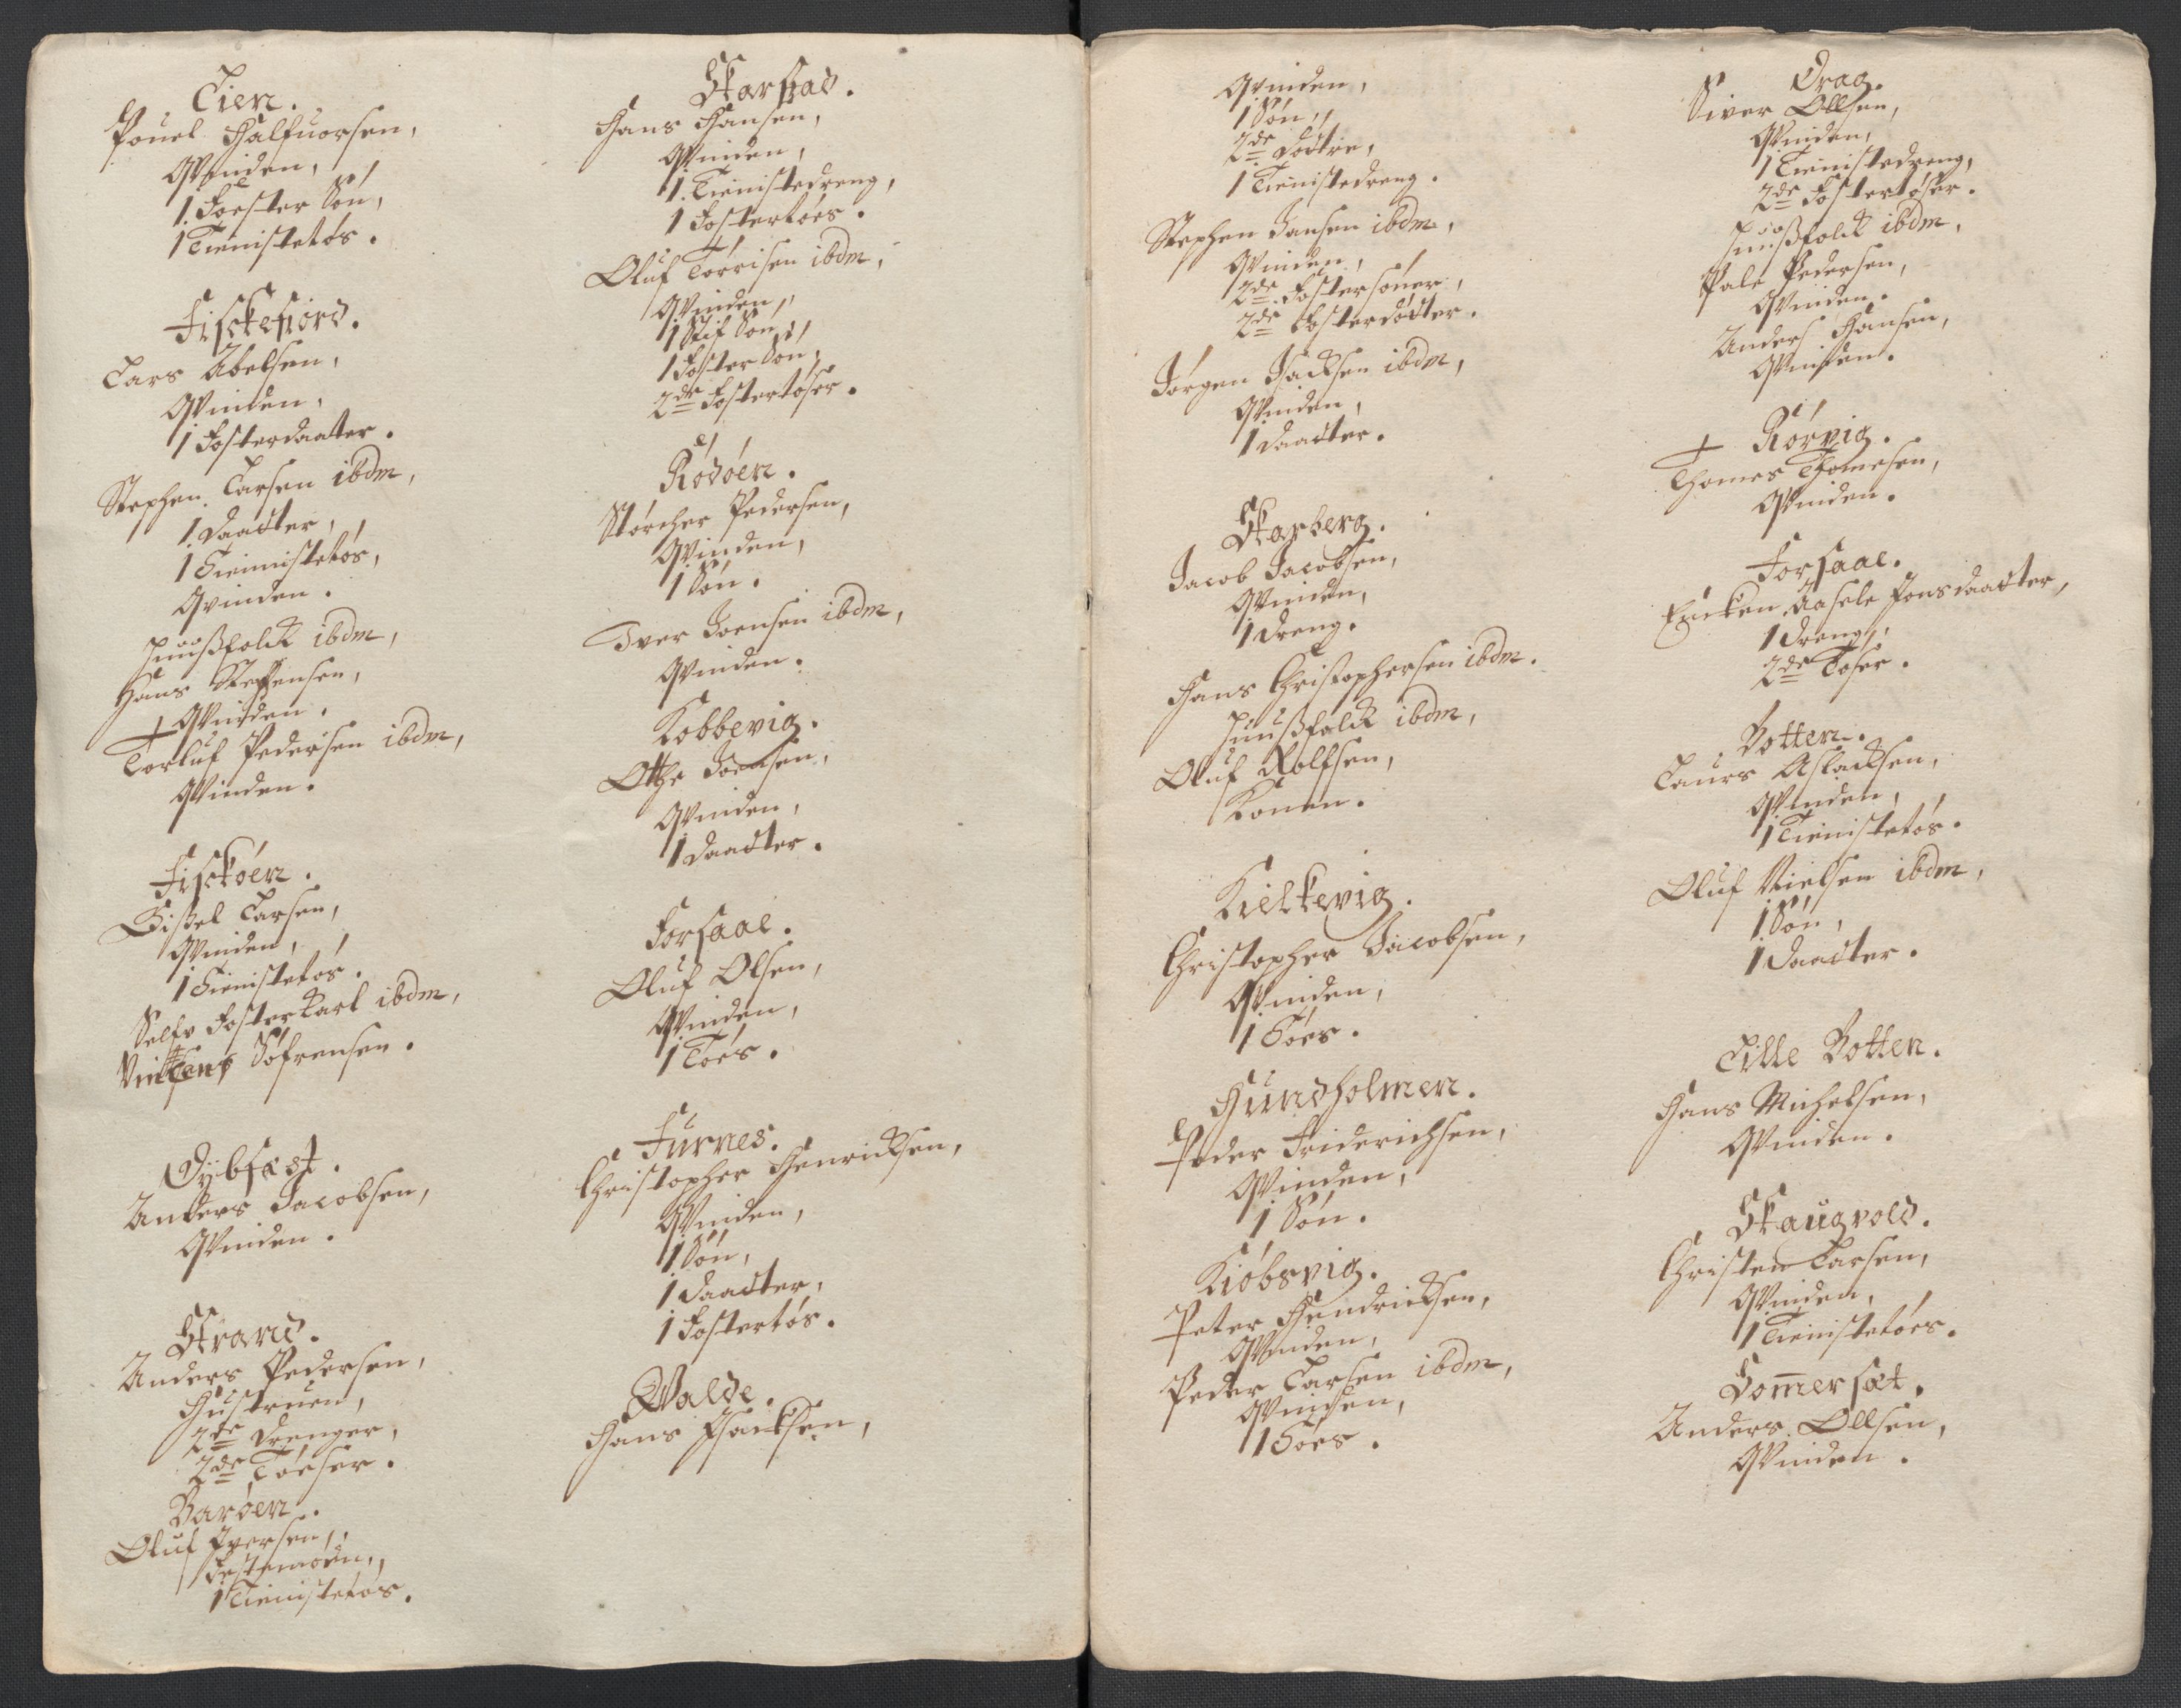 Lien.
Pouel Halfuorsen,
Qvinden,
1 Foester Søn,
1 Tienistetøs.
Fisckefiord.
Lars Abelsen,
Qvinden,
1 Fosterdaatter.
Stephen Larsen ibdm,
1 Daatter,
1 Tiennistetøs,
Qvinden.
Huußfolck ibdm,
Hans Steffensen,
+ Qvinden.
Torluf Pedersen ibdm,
Qvinden.
Fisckøen.
Sißel Larsen,
Qvinden,
1 Tienistetøs.
Selfv Fosterkarl ibdm,
Søfrensen.
Dybfæst.
Anders Jacobsen,
Qvinden.
Strand.
Anders Pedersen,
Hustruen,
2de Drenger,
2de Tøeser.
Barøen.
Oluf Iversen,
Festemøen,
1 Tienistetøs.
Skarstad.
Hans Hansen,
Qvinden,
1 Tienistedreng,
1 Fostertøes.
Oluf Torrisen ibdm,
Qvinden,
1 Stif Søn,
1 Foster Søn,
2de Fostertøser.
Rødøen.
Størcher Pedersen,
Qvinden,
1 Søn.
Iver Joensen ibdm,
Qvinden.
Kobbevig.
Otthe Joensen,
Qvinden,
1 Daatter.
Forsaal.
Oluf Olsen,
Qvinden,
1 Tøes.
Furnes.
Christopher Henricksen,
Qvinden,
1 Søn,
1 Daatter,
1 Fostertøs.
Walde.
Hans Isacksen,
Qvinden,
1 Søn,
2de Døttre,
1 Tienistedreng.
Stephen Jansen ibdm,
Qvinden,
2de Fostersønner,
2de Fosterdøtter.
Jørgen Isacksen ibdm,
Qvinden,
1 Daatter.
Skarberg.
Jacob Jacobsen,
Qvinden,
1 Dreng.
Hans Christophersen ibdm.
Huußfolck ibdm,
Oluf Rolfsen,
Konen.
Kielkevig.
Christopher Jacobsen,
Qvinden,
1 Tøes.
Hundholmen.
Peder Friderichsen,
Qvinden,
1 Søn.
Kiøbsvig.
Peter Hendricksen,
Qvinden,
Peder Larsen ibdm,
Qvinden,
1 Tøes.
Drag.
Siver Ollsen,
Qvinden,
1 Tienistedreng,
2de Fostertøser.
Huußfolck ibdm,
Pale Pedersen,
Qvinden.
Anders Hansen,
Qvinden.
+ Rørvig.
Thomes Thomesen,
Qvinden.
Forsaal.
Encken Aasele Jonsdaatter,
1 Dreng,
2de Tøser.
Botten.
Laurs Aslacksen,
Qvinden,
1 Tienistetøs.
Oluf Nielsen ibdm,
1 Søn,
1 Daatter.
Lille Botten.
Hans Michelsen,
Qvinden.
Skaugvold.
Christen Larsen,
Qvinden,
1 Tienistetøes.
Sommersæt.
Anders Ollsen,
Qvinden.